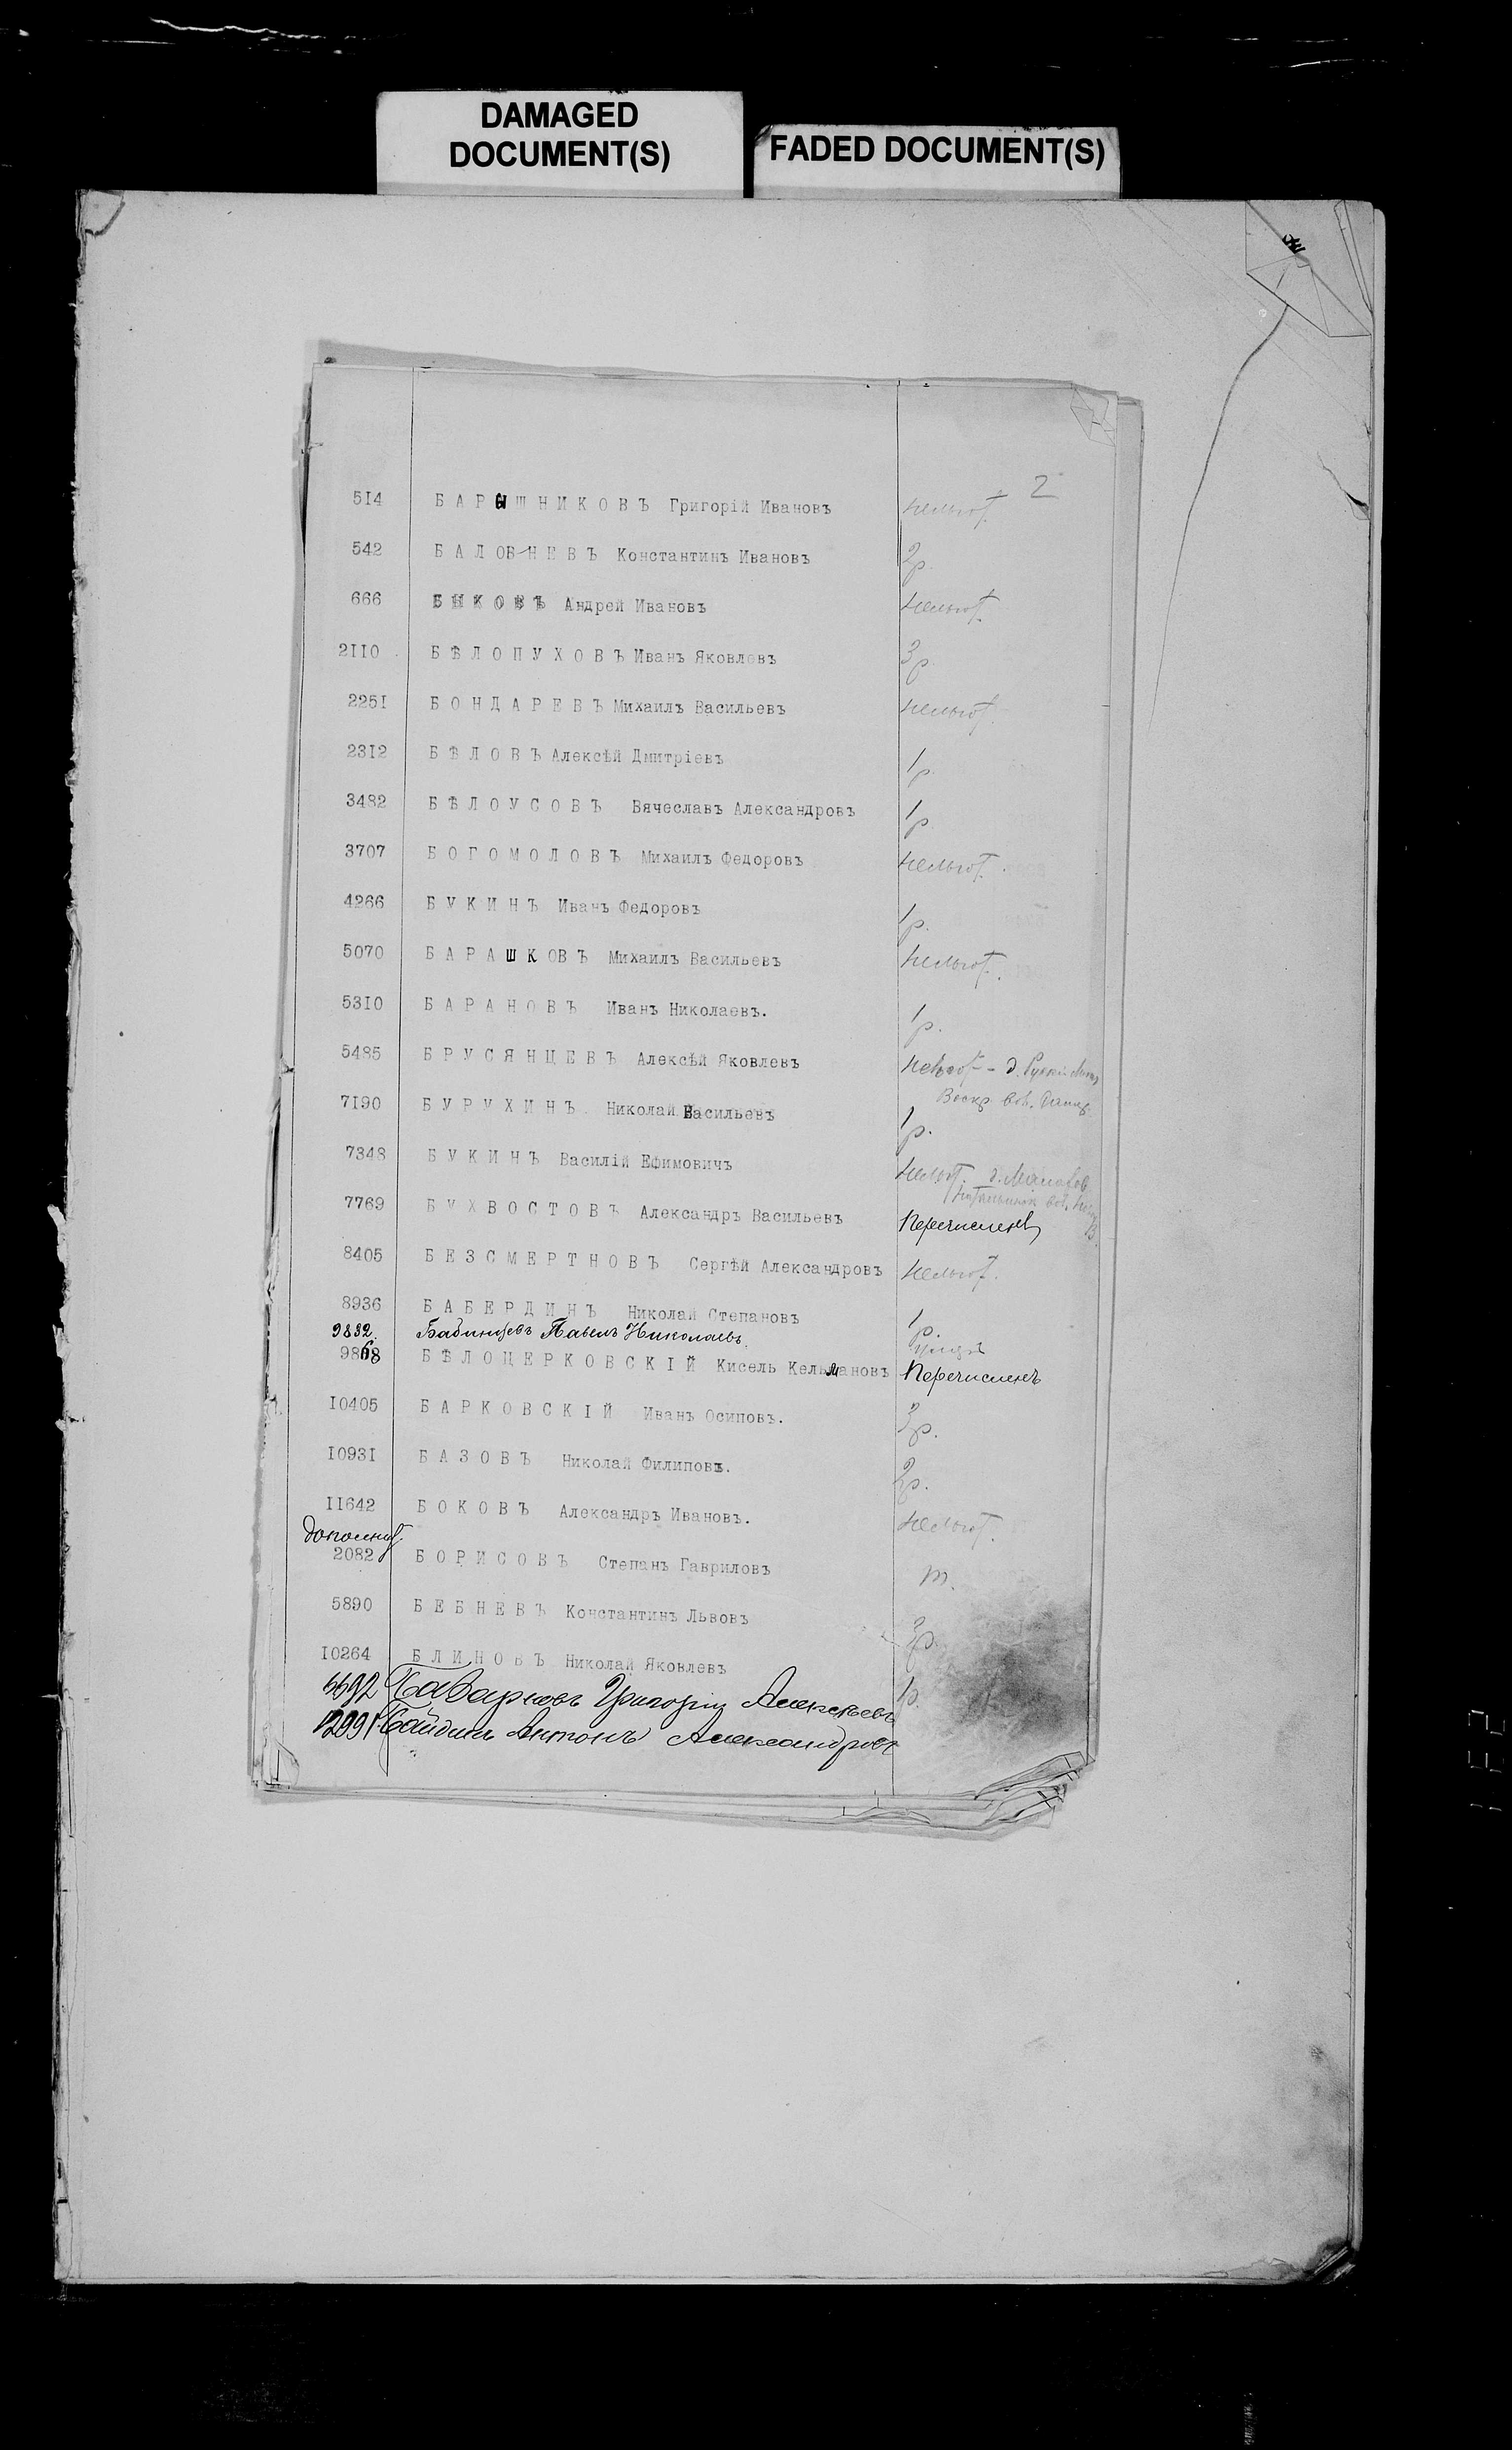 DAMAGED
DOCUMENT(S)
FADED DOCUMENT(S)
2
514 БАРЫШНИКОВЪ Григорій Ивановъ нельгот.
542 БАЛОБНЕВЪ Константинъ Ивановъ 2р.
666 БЫКОВЪ Андрей Ивановъ нельгот.
2110 БѢЛОПУХОВЪ Иванъ Яковлевъ 3р.
2251 БОНДАРЕВЪ Михаилъ Васильевъ нельгот.
2312 БѢЛОВЪ Алексѣй Дмитріевъ 1р.
3482 БѢЛОУСОВЪ Вячеславъ Александровъ 1р
3707 БОГОМОЛОВЪ Михаилъ Федоровъ нельгот.
4266 БУКИНЪ Иванъ Федоровъ 1р.
5070 БАРАШКОВЪ Михаилъ Васильевъ нельгот.
5310 БАРАНОВЪ Иванъ Николаевъ. 1р.
5485 БРУСЯНЦЕВЪ Алексѣй Яковлевъ нельгот - д.
7190 БУРУХИНЪ Николай Васильевъ 1р.
7348 БУКИНЪ Василій Ефимовичъ нельгот. д.
7769 БУХВОСТОВЪ Александръ Васильевъ Перечисленъ
8405 БЕЗСМЕРТНОВЪ Сергѣй Александровъ нельгот.
8936 БАБЕРДИНЪ Николай Степановъ 1р.
9832. Бабинцевъ Павелъ Николаевъ.
9868 БѢЛОЦЕРКОВСКІЙ Кисель Кельмановъ Перечисленъ
10405 БАРКОВСКІЙ Иванъ Осиповъ. 3р.
10931 БАЗОВЪ Николай Филиповъ. 2р.
11642 БОКОВЪ Александръ Ивановъ. нельгот.
дополнит.
2082 БОРИСОВЪ Степанъ Гавриловъ т.
5890 БЕБНЕВЪ Константинъ Львовъ 3р.
10264 БЛИНОВЪ Николай Яковлевъ 1р.
6692 Григорій Алексѣевъ
12991 Байдинъ Антонъ Александровъ